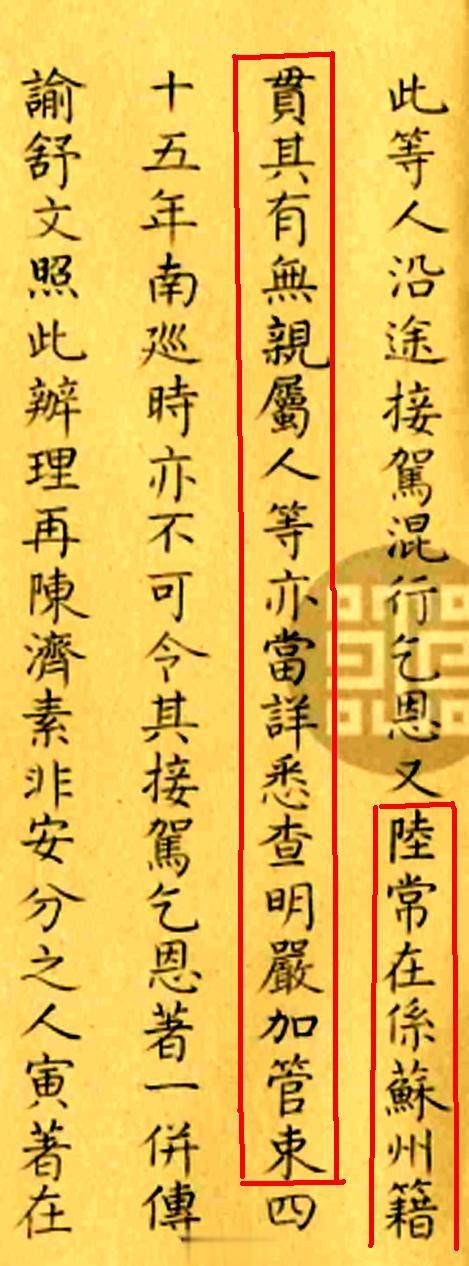 此等人沿途接駕混行乞恩又陸常在係蘇州籍
貫其有無親屬人等亦當詳悉查明嚴加管束四
十五年南廵時亦不可令其接駕乞恩著一併傳
諭舒文照此辦理再陳濟素非安分之人寅著在